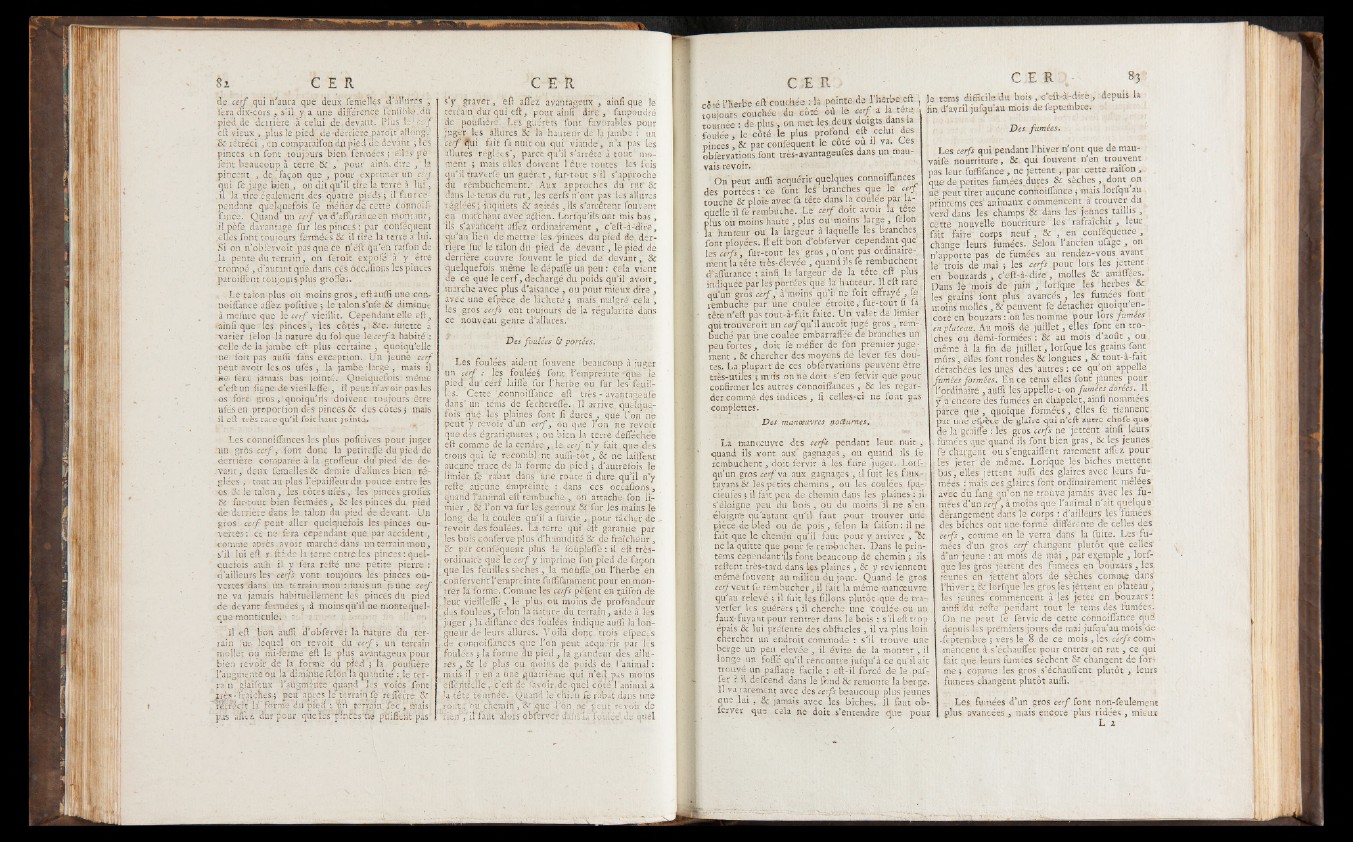 82 C E R
de cerf qui n'aura que deux semelles d'allures,
sera dix-cors, s'il y a une différence sensible du
pied de derrière à celui de devant. Plus le cerf
est vieux, plus le pied de derrière paroît allongé
& rétréci, en comparaison du pied de devant, les
pinces en sont toujours bien fermées : elles pè-
sent beaucoup à terre & , pour ainsi dire, la
pincent , de façon que , pour exprimer un cerf
qui se juge bien, on dit qu'il tire la terre à lui,
il la tire également des quatre pieds ; il faut ce-
pendant quelquefois se méfier de cette connois-
sance. Quand un cerf va d'assurance en montant,
il pèse davantage sur les pinces : par conséquent
elles sont toujours fermées & il tire la terre à lui.
Si on n'observoit pas que ce n'est qu'en raison de
la pente du terrain, on seroit exposé à y être
trompé , d'autant que dans ces occasions les pinces
paroissent toujours plus grosses.
Le talon plus ou moins gros, est aussi une con-
noissance assez positive ; le talon s'use & diminue
à mesure que le cerf vieillit. Cependant elle est,
ainsi que les pinces , les côtés , &c. sujette à
varier selon la nature du sol que le cerf a habité :
celle de la jambe est plus certaine , quoiqu'elle
ne soit pas aussi sans exception. Un jeune cerf
peut avoir les os usés , la jambe large , mais il
ne sera jamais bas jointé. Quelquefois même
c'est un signe de vieillesse, il peut n'avoir pas les
os fort gros, quoiqu'ils doivent toujours être
usés en proportion des pinces & des côtés ; mais
il est très rare qu'il soit haut jointé.
Les connoissances les plus positives pour juger
un gros cerf, sont donc la petitesse du pied de
derrière comparée à la grosseur du pied de de-
vant, deux semelles & demie d'allures bien ré-
glées , tout au plus l'épaisseur du pouce entre les
os & le talon, les côtés usés, les pinces grosses
& sur-tout bien fermées, & les pinces du pied
de derrière dans le talon du pied de devant. Un
gros cerf peut aller quelquefois les pinces ou-
vertes : ce ne sera cependant que par accident,
comme après avoir marché dans un terrain mou,
s'il lui est resté de la terre entre les pinces : quel-
quefois aussi il y sera resté une petite pierre :
d'ailleurs les cerfs vont toujours les pinces ou-
vertes dans un terrain mou : mais un jeune cerf
ne va jamais habituellement les pinces du pied
de devant fermées, à moins qu'il ne monte quel-
que monticule.
Il est bon aussi d'observer la nature du ter-
rain sur lequel on revoit du cerf ; un terrain
mollet ou mi-ferme est le plus avantageux pour
bien revoir de la forme du pied ; la poussière
l'augmente ou la diminue selon la quantité : le ter-
rain glaiseux l'augmente quand les voies sont
très-fraîches ; peu après le terrain se resserre &
rétrécit la forme du pied : un terrain sec, mais
pas assez dur pour que les pinces ne puissent pas
C E R
s'y graver, est assez avantageux , ainsi que le
terrain dur qui est, pour ainsi dire, saupoudré
de poussière. Les guérets sont favorables pour
juger les allures & la hauteur de la jambe : un
cerf qui fait sa nuit ou qui viande, n'a pas les
allures réglées, parce qu'il s'arrête à tout mo-
ment ; mais elles doivent l'être toutes les fois
qu'il traverse un guéret, sur-tout s'il s'approche
du rembuchement. Aux approches du rut &
dans le tems du rut, les cerfs n'ont pas les allures
réglées ; inquiets & agités , ils s'arrêtent souvent
en marchant avec action. Lorsqu'ils ont mis bas ,
ils s'avancent assez ordinairement , c'est-à-dire,
qu'au lieu de mettre les pinces du pied de der-
rière sur le talon du pied de devant , le pied de
derrière couvre souvent le pied de devant, &
quelquefois même le dépasse un peu : cela vient
de ce que le cerf, déchargé du poids qu'il avoit,
marche avec plus d'aisance , ou pour mieux dire ,
avec une espèce de lâcheté ; mais malgré cela ,
les gros cerfs ont toujours de la régularité dans
ce nouveau genre d'allures.
Des foulées & portées.
Les foulées aident souvent beaucoup à juger
un cerf : les foulées sont l'empreinte que le
pied du cerf laisse sur l'herbe ou sur les feuil-
les. Cette connoissance est très - avantageuse
dans un tems de sécheresse. Il arrive quelque-
fois que les plaines sont si dures , que l'on ne
peut y revoir d'un cerf, ou que l'on ne revoit
que des égratignures ; ou bien la terre desséchée
est comme de la cendre, le cerf n'y fait que des
trous qui se recomblent aussi-tôt, & ne laissent
aucune trace de la forme du pied ; d'autrefois le
limier se rabat dans une route si dure qu'il n'y
reste aucune empreinte : dans ces occasions,
quand l'animal est rembuché , on attache son li-
mier , & l'on va sur les genoux & sur les mains le
long de la coulée qu'il a suivie , pour tâcher de
revoir des foulées. La terre qui est garantie par
les bois conserve plus d'humidité & de fraîcheur,
& par conséquent plus de souplesse : il est très-
ordinaire que le cerf y imprime son pied de façon
que les feuilles sèches , la mousse ou l'herbe en
conservent l'empreinte suffisamment pour en mon-
trer la forme. Comme les cerfs pèsent en raison de
leur vieillesse , le plus ou moins de profondeur
des foulées, selon la nature du terrain, aide à les
juger ; la distance des foulées indique aussi la lon-
gueur de leurs allures. Voilà donc trois espèces
de connoissances que l'on peut acquérir par les
foulées ; la forme du pied , la grandeur des allu-
res , & le plus ou moins de poids de l'animal :
mais il y en a une quatrième qui n'est pas moins
essentielle , c'est de savoir de quel côté l'animal a
la tête tournée. Quand le chien se rabat dans une
route ou chemin, & que l'on ne peut revoir de
rien , il faut alors observer dans la foulée de quel
C E R
côté l'herbe est couchée : la pointe de l'herbe est
toujours couchée du côté où le cerf a la tête
tournée : de plus, on met les deux doigts dans la
foulée , le côté le plus profond est celui des
pinces , & par conséquent le côté où il va. Ces
observations sont très-avantageuses dans un mau-
vais-revoir.
On peut aussi acquérir quelques connoissances
des portées : ce sont les branches que le cerf
touche & ploie avec sa tête dans la coulée par la-
quelle il se rembuche. Le cerf doit avoir la tête
plus ou moins haute , plus ou moins large , selon
la hauteur ou la largeur à laquelle les branches
sont ployées. Il est bon d'observer cependant que
les cerfs, sur-tout les gros , n'ont pas ordinaire-
ment la tête très-élevée , quand ils se rembuchent
d'assurance : ainsi la largeur de la tête est plus
indiquée par les portées que la hauteur. Il est rare
qu'un gros cerf, à moins qu'il ne soit effrayé , se
rembuche par une coulée étroite, sur-tout si sa
tête n'est pas tout-à-fait faite. Un valet de limier
qui trouveroit un cerf qu'il auroit jugé gros , rem-
buché par une coulée embarrassée de branches un
peu fortes , doit se méfier de son premier juge-
ment, & chercher des moyens de lever ses dou-
tes. La plupart de ces observations peuvent être
très-utiles ; mais on ne doit s'en servir que pour
confirmer les autres connoissances , & les regar-
der comme des indices , si celles-ci ne sont pas
complettes.
Des manœuvres nocturnes.
La manœuvre des cerfs pendant leur nuit ,
quand ils vont aux gagnages, ou quand ils se
rembuchent, doit servir à les faire juger. Lors-
qu'un gros cerf va aux gagnages , il suit les faux-
fuyans & les petits chemins , ou les coulées spa-
cieuses ; il fait peu de chemin dans les plaines : il
s'éloigne peu du bois , ou du moins il ne s'en
éloigne qu'autant qu'il faut pour trouver une
pièce de bled ou de pois, selon la saison : il ne
fait que le chemin qu'il faut pour y arriver , &
ne la quitte que pour se rembucher. Dans le prin-
tems cependant ils font beaucoup de chemin ; ils
restent très-tard dans les plaines , & y reviennent
même souvent au milieu du jour. Quand le gros
cerf veut se rembucher , il fait la même manœuvre
qu'au relevé ; il suit les sillons plutôt que de tra-
verser les guérets ; il cherche une coulée ou un
faux-fuyant pour rentrer dans le bois : s'il est trop
épais & lui présente des obstacles , il va plus loin
chercher un endroit commode : s'il trouve une
berge un peu élevée , il évite de la monter, il
longe un fossé qu'il rencontre jusqu'à ce qu'il ait
trouvé un passage facile : est-il forcé de le pas-
ser ? il descend dans le fond & remonte la berge.
Il va rarement avec des cerfs beaucoup plus jeunes
que lui, & jamais avec les biches. Il faut ob-
server que cela ne doit s'entendre que pour
C E R 83
le tems difficile du bois, c'est-à-dire, depuis la
fin d'avril jusqu'au mois de septembre.
Des fumées.
Les cerfs qui pendant l'hiver n'ont que de mau-
vaise nourriture, & qui souvent n'en trouvent
pas leur suffisance , ne jettent, par cette raison ,
que de petites fumées dures & sèches , dont on
ne peut tirer aucune connoissance ; mais lorsqu'au
printems ces animaux commencent à trouver du
verd dans les champs & dans les jeunes taillis ,
cette nouvelle nourriture les rafraîchit, leur
fait faire corps neuf, & , en conséquence ,
change leurs fumées. Selon l'ancien usage , on
n'apporte pas de fumées au rendez-vous avant
le trois de mai ; les cerfs pour lors les jettent
en bouzards , c'est-à-dire , molles & amassées.
Dans le mois de juin , lorsque les herbes &
les grains sont plus avancés , les fumées sont
moins molles, & peuvent se détacher quoiqu'en-
core en bouzars : on les nomme pour lors fumées
en plateau. Au mois de juillet , elles sont en tro-
ches ou demi-formées ; & au mois d'août , ou
même à la fin de juillet, lorsque les grains sont
mûrs, elles sont rondes & longues , & tout-à-fait
détachées les unes des autres : ce qu'on appelle
fumées formées. En ce tems elles sont jaunes pour
l'ordinaire , aussi les appelle-t-on fumées dorées. Il
y a encore des fumées en chapelet, ainsi nommées
parce que , quoique formées , elles se tiennent
par une espèce de glaire qui n'est autre chose que
de la graisse : les gros cerfs ne jettent ainsi leurs
fumées que quand ils sont bien gras , & les jeunes
se chargent ou s'engraissent rarement assez pour
les jeter de même. Lorsque les biches mettent
bas , elles jettent aussi des glaires avec leurs fu-
mées : mais ces glaires sont ordinairement mêlées
avec du sang qu'on ne trouve jamais avec les fu-
mées d'un cerf, à moins que l'animal n'ait quelque
dérangement dans le corps : d'ailleurs les fumées
des biches ont une forme différente de celles des
cerfs , comme on le verra dans la suite. Les fu-
mées d'un gros cerf changent plutôt que celles
d'un jeune : au mois de mai , par exemple , lors-
que les gros jettent des fumées en bouzars , les
jeunes en jettent alors de sèches comme dans
l'hiver ; & lorsque les gros les jettent en plateau ,
les jeunes commencent à les jeter en bouzars :
ainsi du reste pendant tout le tems des fumées.
On ne peut se servir de cette connoissance que
depuis les premiers jours de mai jusqu'au mois de
septembre ; vers le 8 de ce mois, les cerfs com-
mencent à s'échauffer pour entrer en rut , ce qui
fait que leurs fumées sèchent & changent de for-
me ; comme les gros s'échauffent plutôt , leurs
fumées changent plutôt aussi.
Les fumées d'un gros cerf sont non-seulement
plus avancées , mais encore plus ridées, mieux
L 2